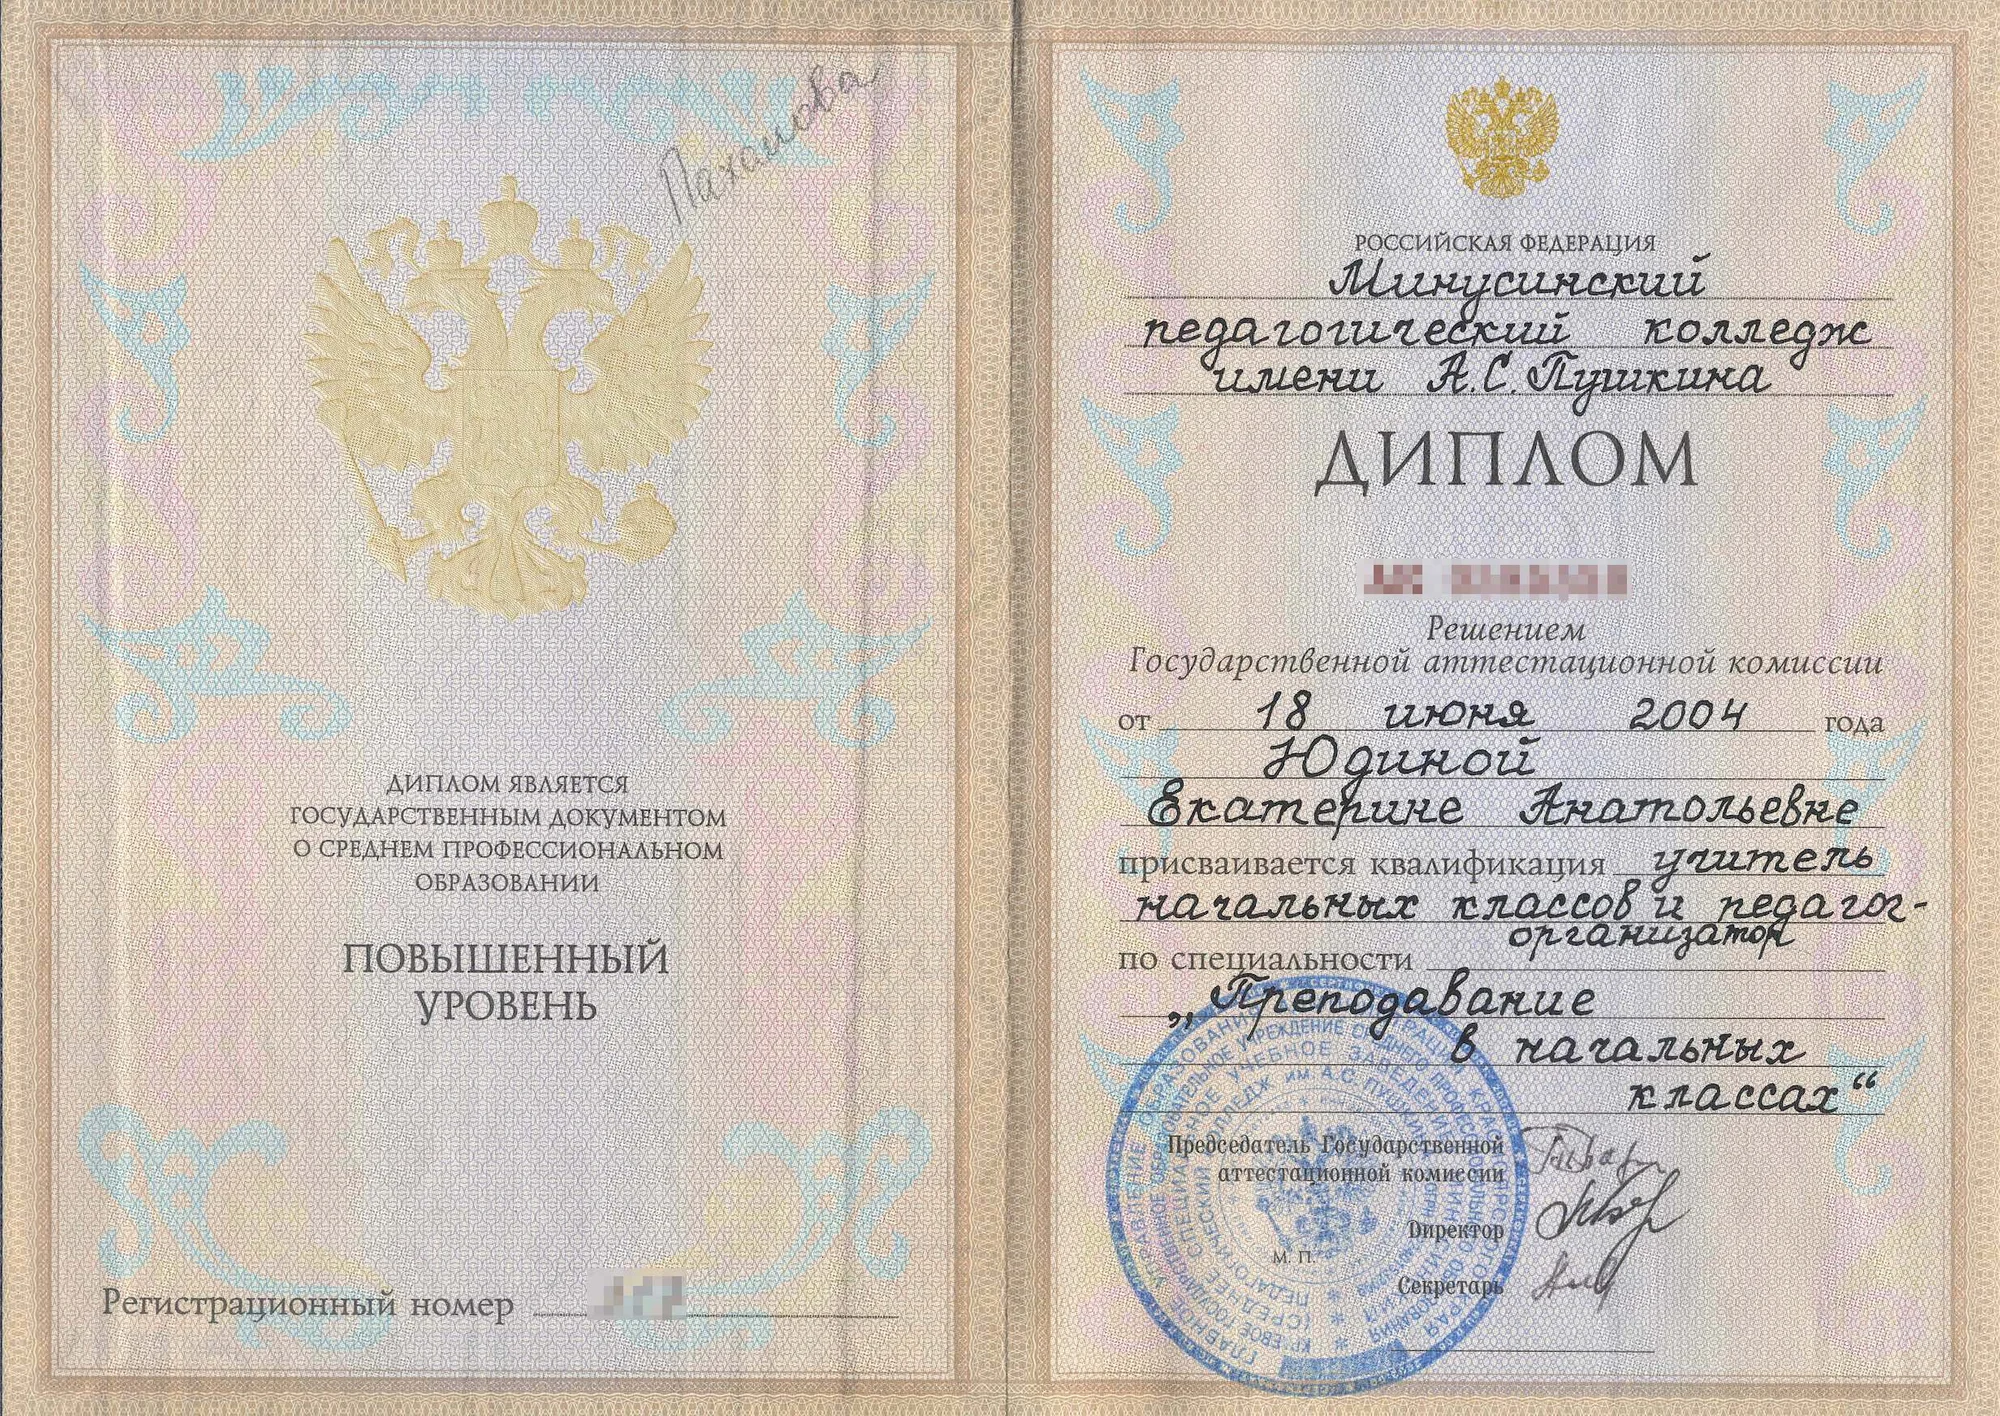 Пахомова
ДИПЛОМ ЯВЛЯЕТСЯ
ГОСУДАРСТВЕННЫМ ДОКУМЕНТОМ
О СРЕДНЕМ ПРОФЕССИОНАЛЬНОМ
ОБРАЗОВАНИИ
ПОВЫШЕННЫЙ
УРОВЕНЬ
Регистрационный номер
РОССИЙСКАЯ ФЕДЕРАЦИЯ
Минусинский
педагогический колледж
имени А.С.Пушкина
ДИПЛОМ
Решением
Государственной аттестационной комиссии
от 18 июня 2004 года
Юдиной
Екатерине Анатольевне
присваивается квалификация учитель
начальных классов и педагог-
организатор
по специальности
„Преподавание
в начальных
классах“
Председатель Государственной
аттестационной комиссии
Директор
М. П.
Секретарь